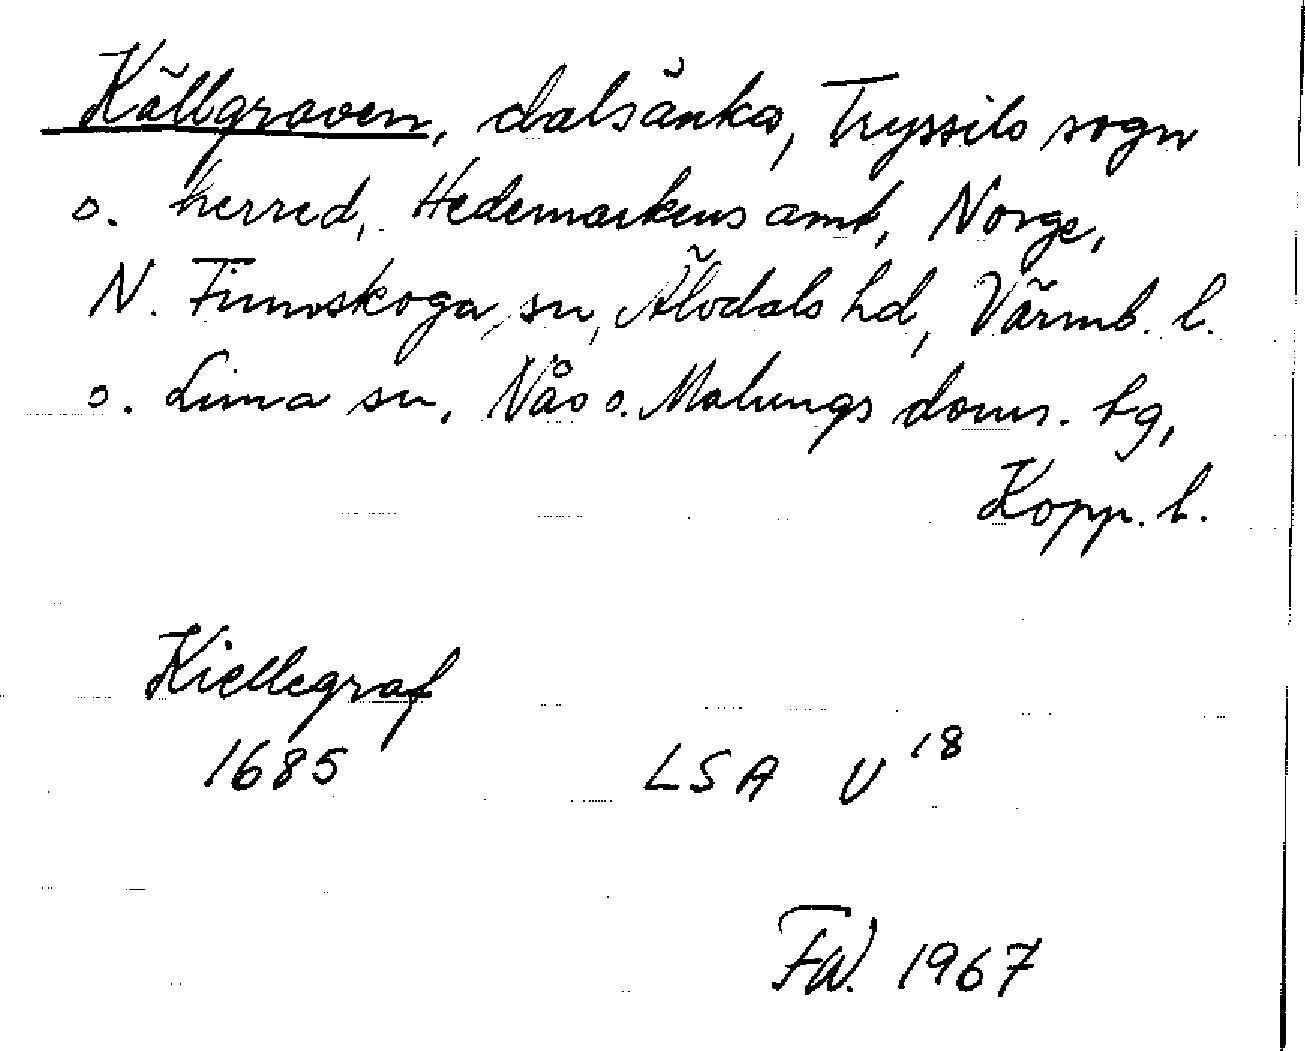 Källgraven, dalsänka, Tryssils sogn
o. herred, Hedemarkens amt, Norge,
N. Finnskoga sn, Älvdals hd, Värml. l.
o. Lima sn, Nås o. Malungs doms. lg,
Kopp. l.
Kiellegraf
1685 LSA V 18
FW. 1967